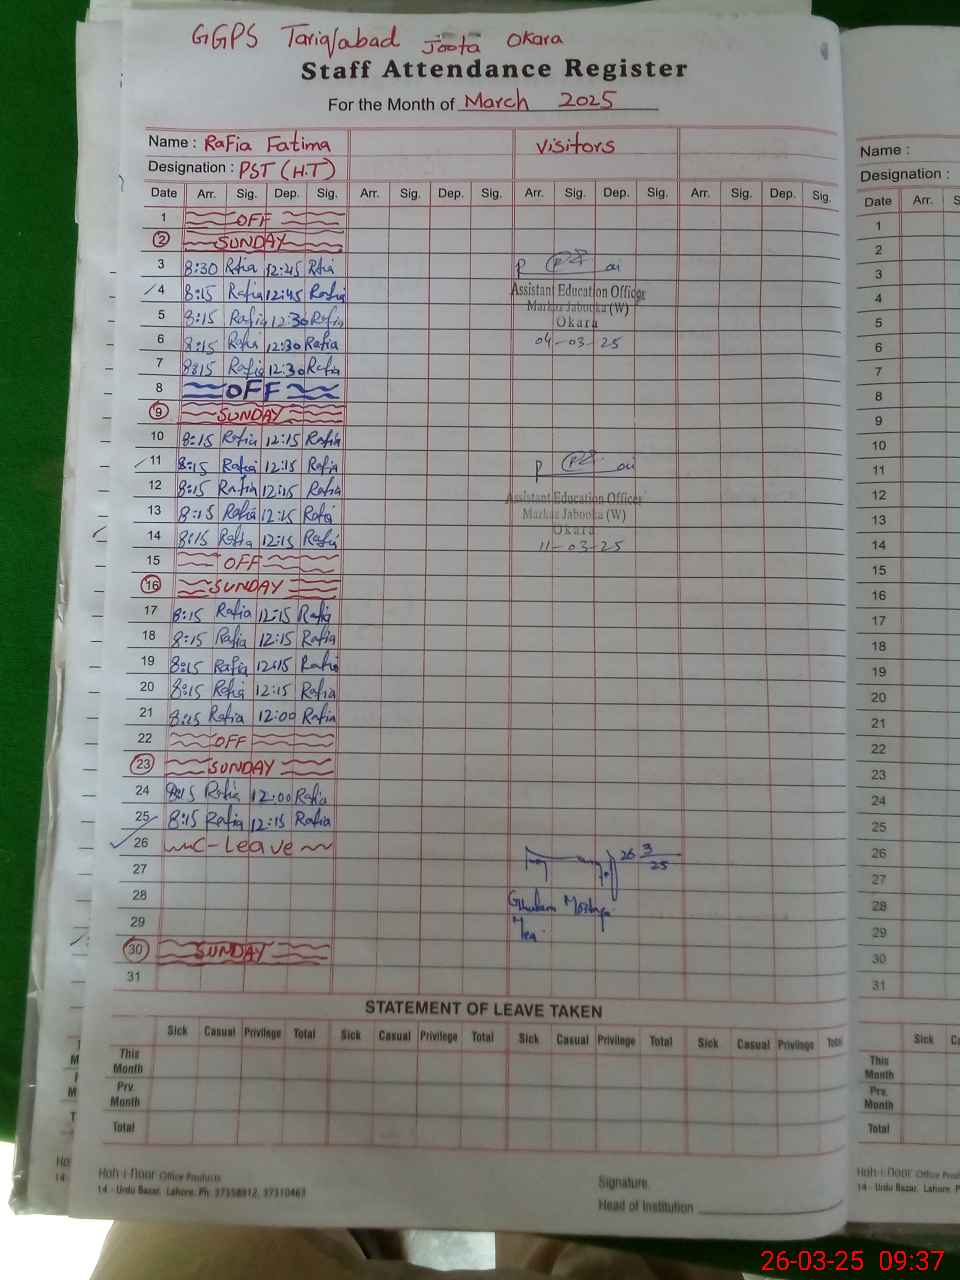 GGPS Tariqabad Joota Okara
Staff Attendance Register
For the Month of March 2025
Name : Rafia Fatima Visitors
Designation : PST (H.T)
Date Arr. Sig. Dep. Sig. Arr. Sig. Dep. Sig. Arr. Sig. Dep. Sig. Arr. Sig. Dep. Sig.
1 OFF
2 SUNDAY
3 8:30 Rafia 12:45 Rafia
4 8:15 Rafia 12:45 Rafia
Assistant Education Officer
5 8:15 Rafia 12:30 Rafia
Markaz Jabooka (W)
Okara
6 8:15 Rafia 12:30 Rafia 04-03-25
7 8:15 Rafia 12:30 Rafia
8 OFF
9 SUNDAY
10 8:15 Rafia 12:15 Rafia
11 8:15 Rafia 12:15 Rafia
12 8:15 Rafia 12:15 Rafia
Assistant Education Officer
13 8:15 Rafia 12:15 Rafia
Markaz Jabooka (W)
Okara
14 8:15 Rafia 12:15 Rafia 11-03-25
15 OFF
16 SUNDAY
17 8:15 Rafia 12:15 Rafia
18 8:15 Rafia 12:15 Rafia
19 8:15 Rafia 12:15 Rafia
20 8:15 Rafia 12:15 Rafia
21 8:15 Rafia 12:00 Rafia
22 OFF
23 SUNDAY
24 8:15 Rafia 12:00 Rafia
25 8:15 Rafia 12:15 Rafia
26 C-Leave 26 3/25
27
28 Ghulam
29
30 SUNDAY
31
STATEMENT OF LEAVE TAKEN
Sick Casual Privilege Total Sick Casual Privilege Total Sick Casual Privilege Total Sick Casual Privilege Total
This Month
Prv. Month
Total
Koh-i-noor Office Products
14 - Urdu Bazar, Lahore. Ph: 37358812, 37310463
Signature.
Head of Institution
Name :
Designation :
Date Arr.
1
2
3
4
5
6
7
8
9
10
11
12
13
14
15
16
17
18
19
20
21
22
23
24
25
26
27
28
29
30
31
Sick
This Month
Prv. Month
Total
Koh-i-noor Office
14 - Urdu Bazar, Lahore.
26-03-25 09:37